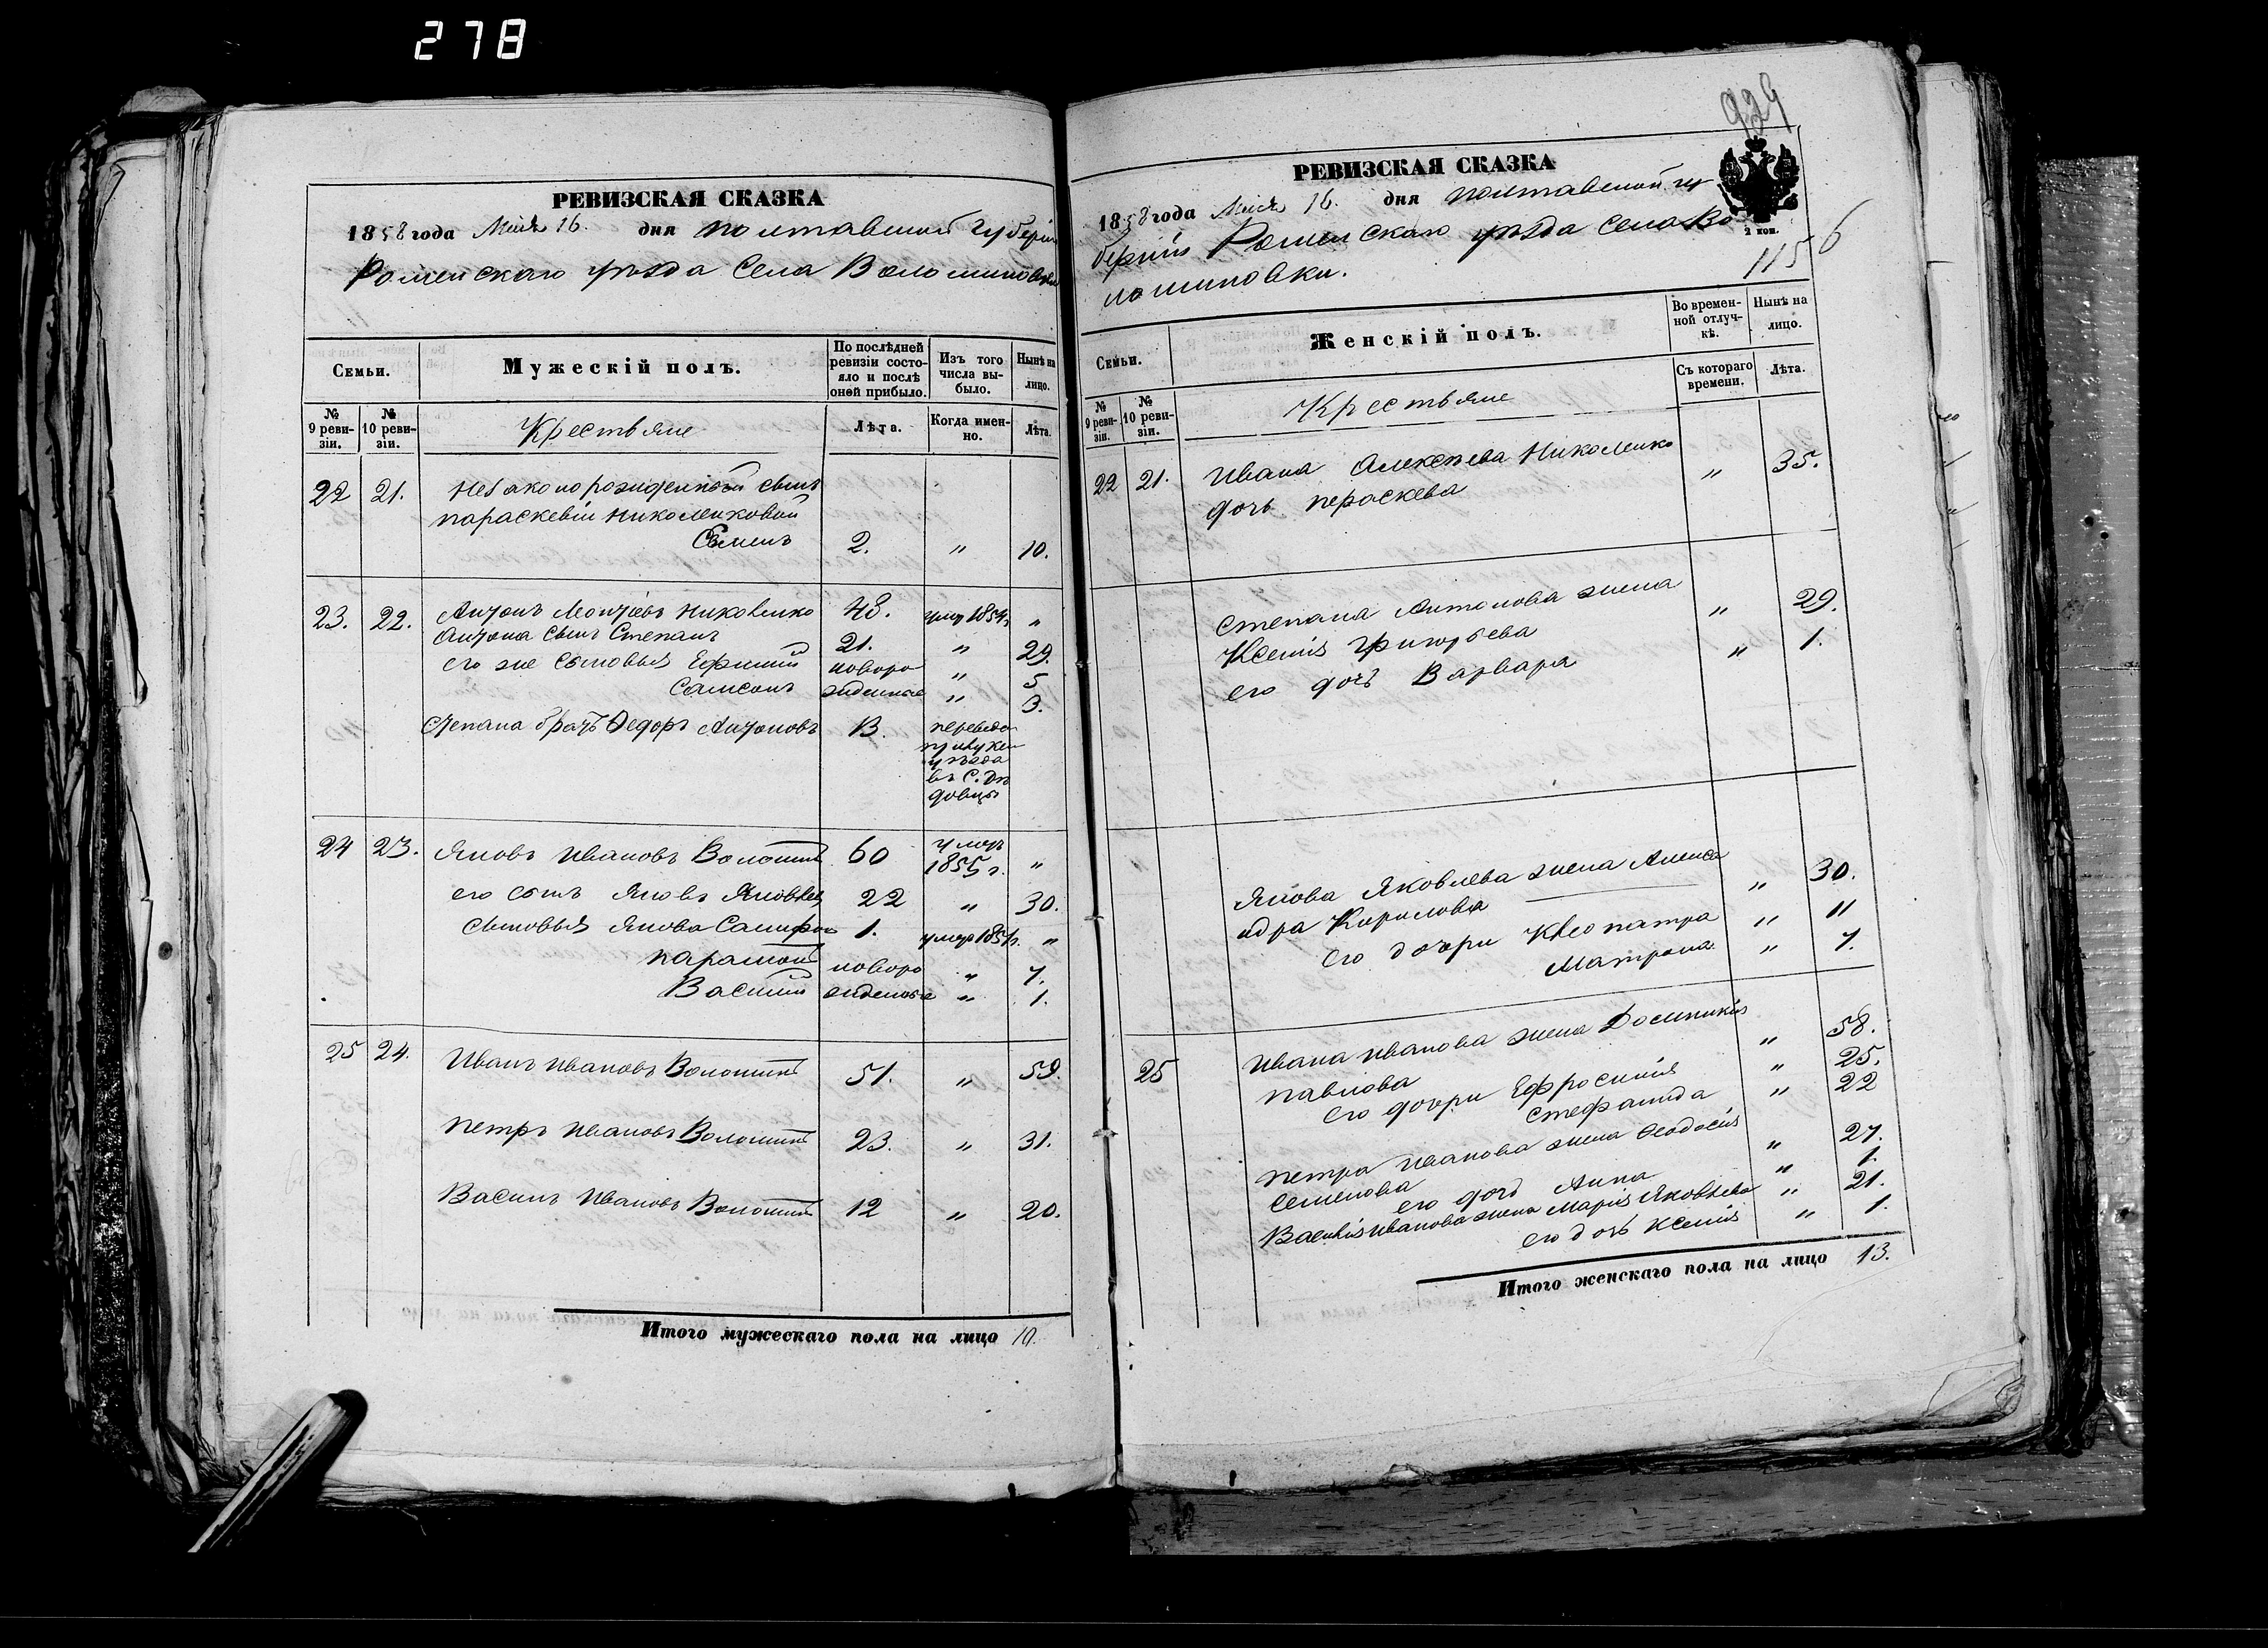 278
РЕВИЗСКАЯ СКАЗКА
1858 года Маія 16. дня полтавской губерніи
Роменскаго уѣзда Села Волошиновки
Семьи.
Мужескій полъ.
По послѣдней ревизіи состояло и послѣ оной прибыло.
Изъ того числа выбыло.
Нынѣ на лицо.
№ 9 ревизіи.
№ 10 ревизіи.
Крестьяне
Лѣта.
Когда именно.
Лѣта.
22 21. Незаконорожденный сынъ
параскевіи Николенковой
Семенъ 2. " 10.
23. 22. Антонъ Николенко 43. умер "
Антона сынъ Степанъ 21. " 29.
его же сыновья Ефимий новоро " 5
Самсонъ жденные " 3.
Степана братъ Федоръ Антоновъ 13. переведен
уѣзда
въ С.
24 23. Яковъ Ивановъ Волошинъ 60 умеръ
1855 г. "
его сынъ Яковъ Яковлевъ 22 " 30.
сыновья Якова 1. умер "
новоро " 7.
Василий жденные " 1.
25 24. Иванъ Ивановъ Волошинъ 51. " 59.
Петръ Ивановъ Волошинъ 23. " 31.
Василь Ивановъ Волошинъ 12 " 20.
Итого мужескаго пола на лицо 10.
929
РЕВИЗСКАЯ СКАЗКА
1858 года Маія 16. дня полтавской гу
2 коп.
берніи Роменскаго уѣзда села Во
лошиновки.
115
6
Семьи.
Женскій полъ.
Во временной отлучкѣ.
Нынѣ на лицо.
Съ котораго времени.
Лѣта.
№ 9 ревизіи.
№ 10 ревизіи.
Крестьяне
22 21. Ивана Алексѣева Николенко
дочь пераскева " 35.
Степана Антонова жена
Ксенія Григорьева " 29.
его дочь Варвара " 1.
Якова Яковлева жена Алекса
ндра Кирилова " 30.
его дочри Клеопатра " 11
Матрона " 7.
25 Ивана Иванова жена Домникія
павлова " 58.
его дочри Ефросинія " 25.
стефанида " 22
петра Иванова жена Феодосія
семенова " 27.
его дочь Анна " 1.
Василія Иванова жена Марія Яковлева " 21.
его дочь Ксенія " 1.
Итого женскаго пола на лицо 13.